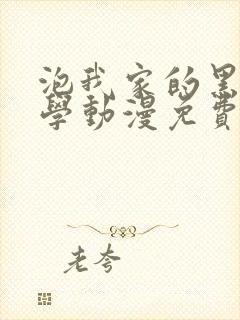 泡我家的黑
學動漫免費
老夸